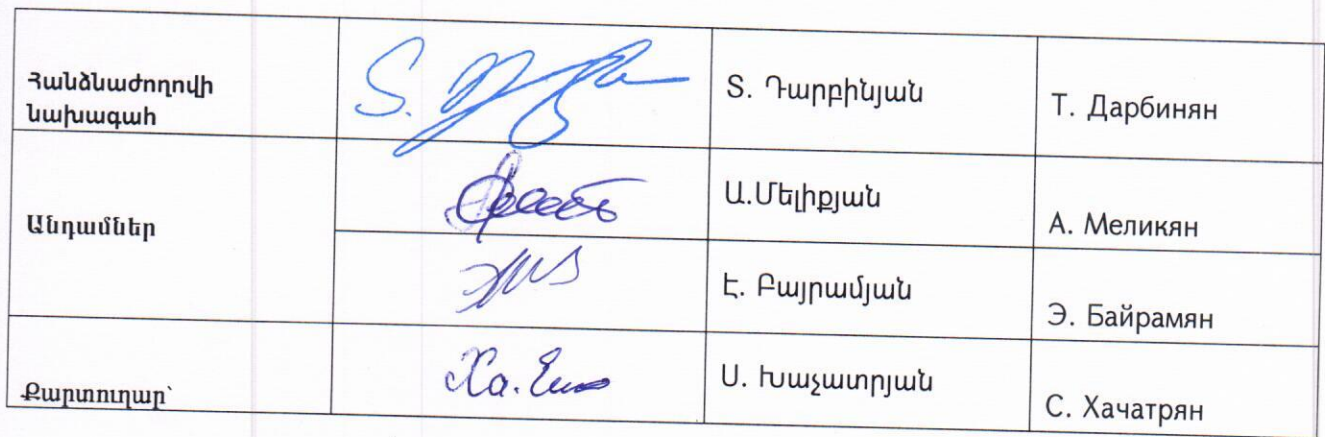 Հանձնաժողովի
նախագահ
Տ. Դարբինյան
Т. Дарбинян
Անդամներ
Ա.Մելիքյան
А. Меликян
Է. Բայրամյան
Э. Байрамян
Քարտուղար՝
Ս. Խաչատրյան
С. Хачатрян